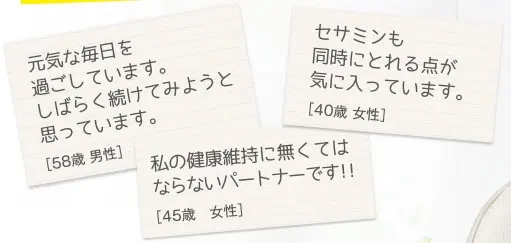 元気な毎日を
過ごしています。
しばらく続けてみようと
思っています。
[58歳 男性]
セサミンも
同時にとれる点が
気に入っています。
[40歳 女性]
私の健康維持に無くては
ならないパートナーです!!
[45歳 女性]